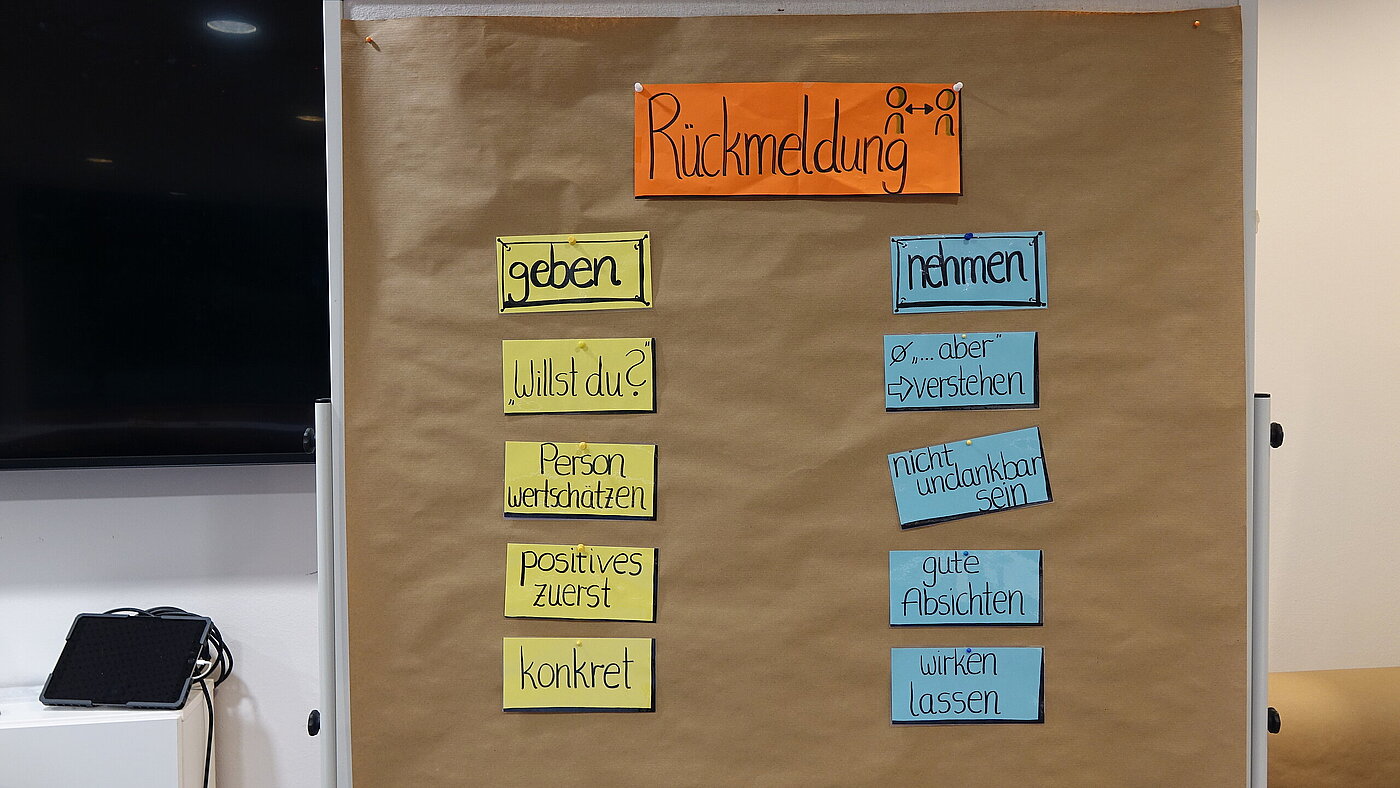 Rückmeldung
geben
„Willst du?"
Person
wertschätzen
positives
zuerst
konkret
nehmen
Ø „... aber"
⇨ verstehen
nicht
undankbar
sein
gute
Absichten
wirken
lassen